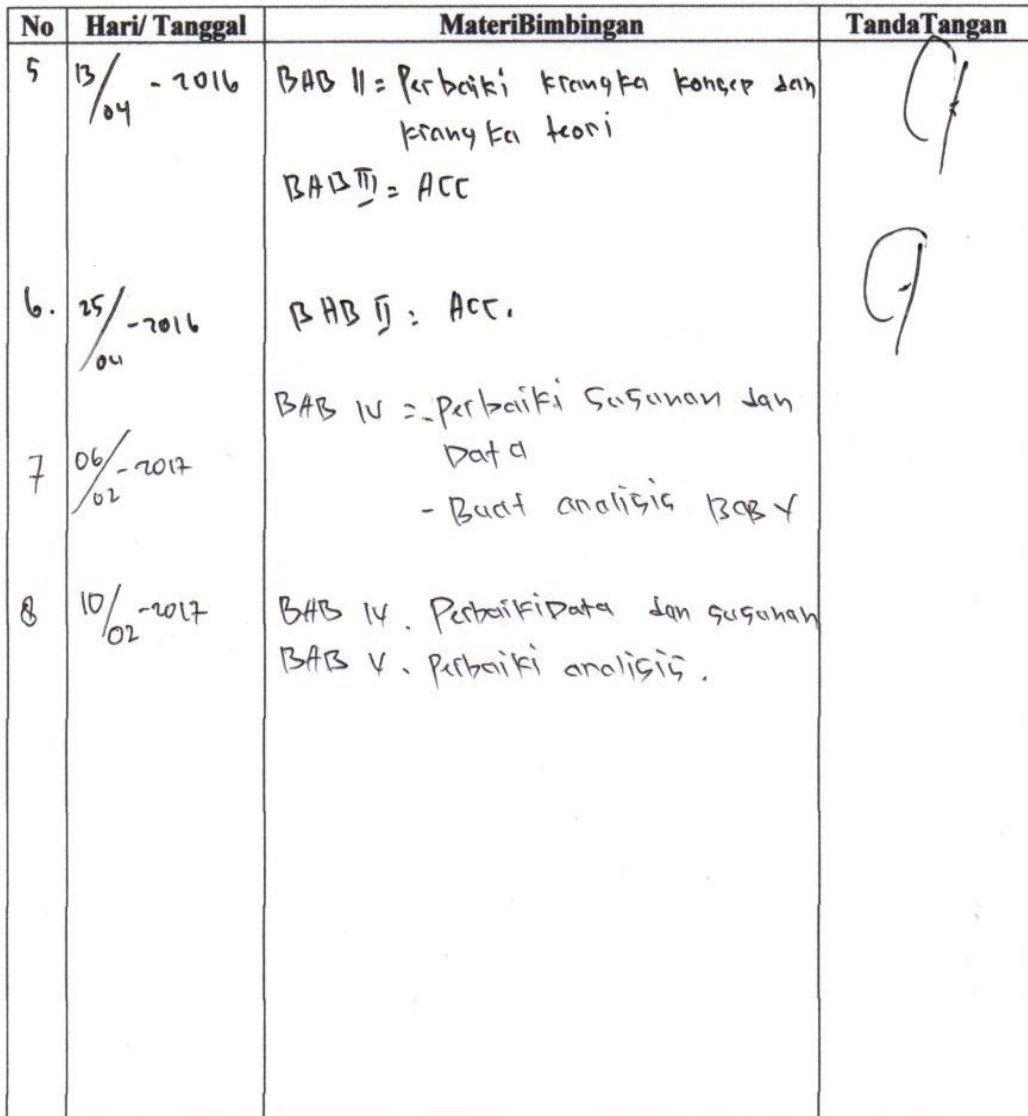 No Hari/ Tanggal MateriBimbingan TandaTangan
5 13/04 - 2016 BAB II = Perbaiki krangka konsep dan
krangka teori
BAB III = ACC
6. 25/04 -2016 BAB II : ACC.
BAB IV = - Perbaiki susunan dan
7 06/02 -2017 Data
- Buat analisis BAB V
8 10/02 -2017 BAB IV . Perbaiki Data dan susunan
BAB V . Perbaiki analisis .